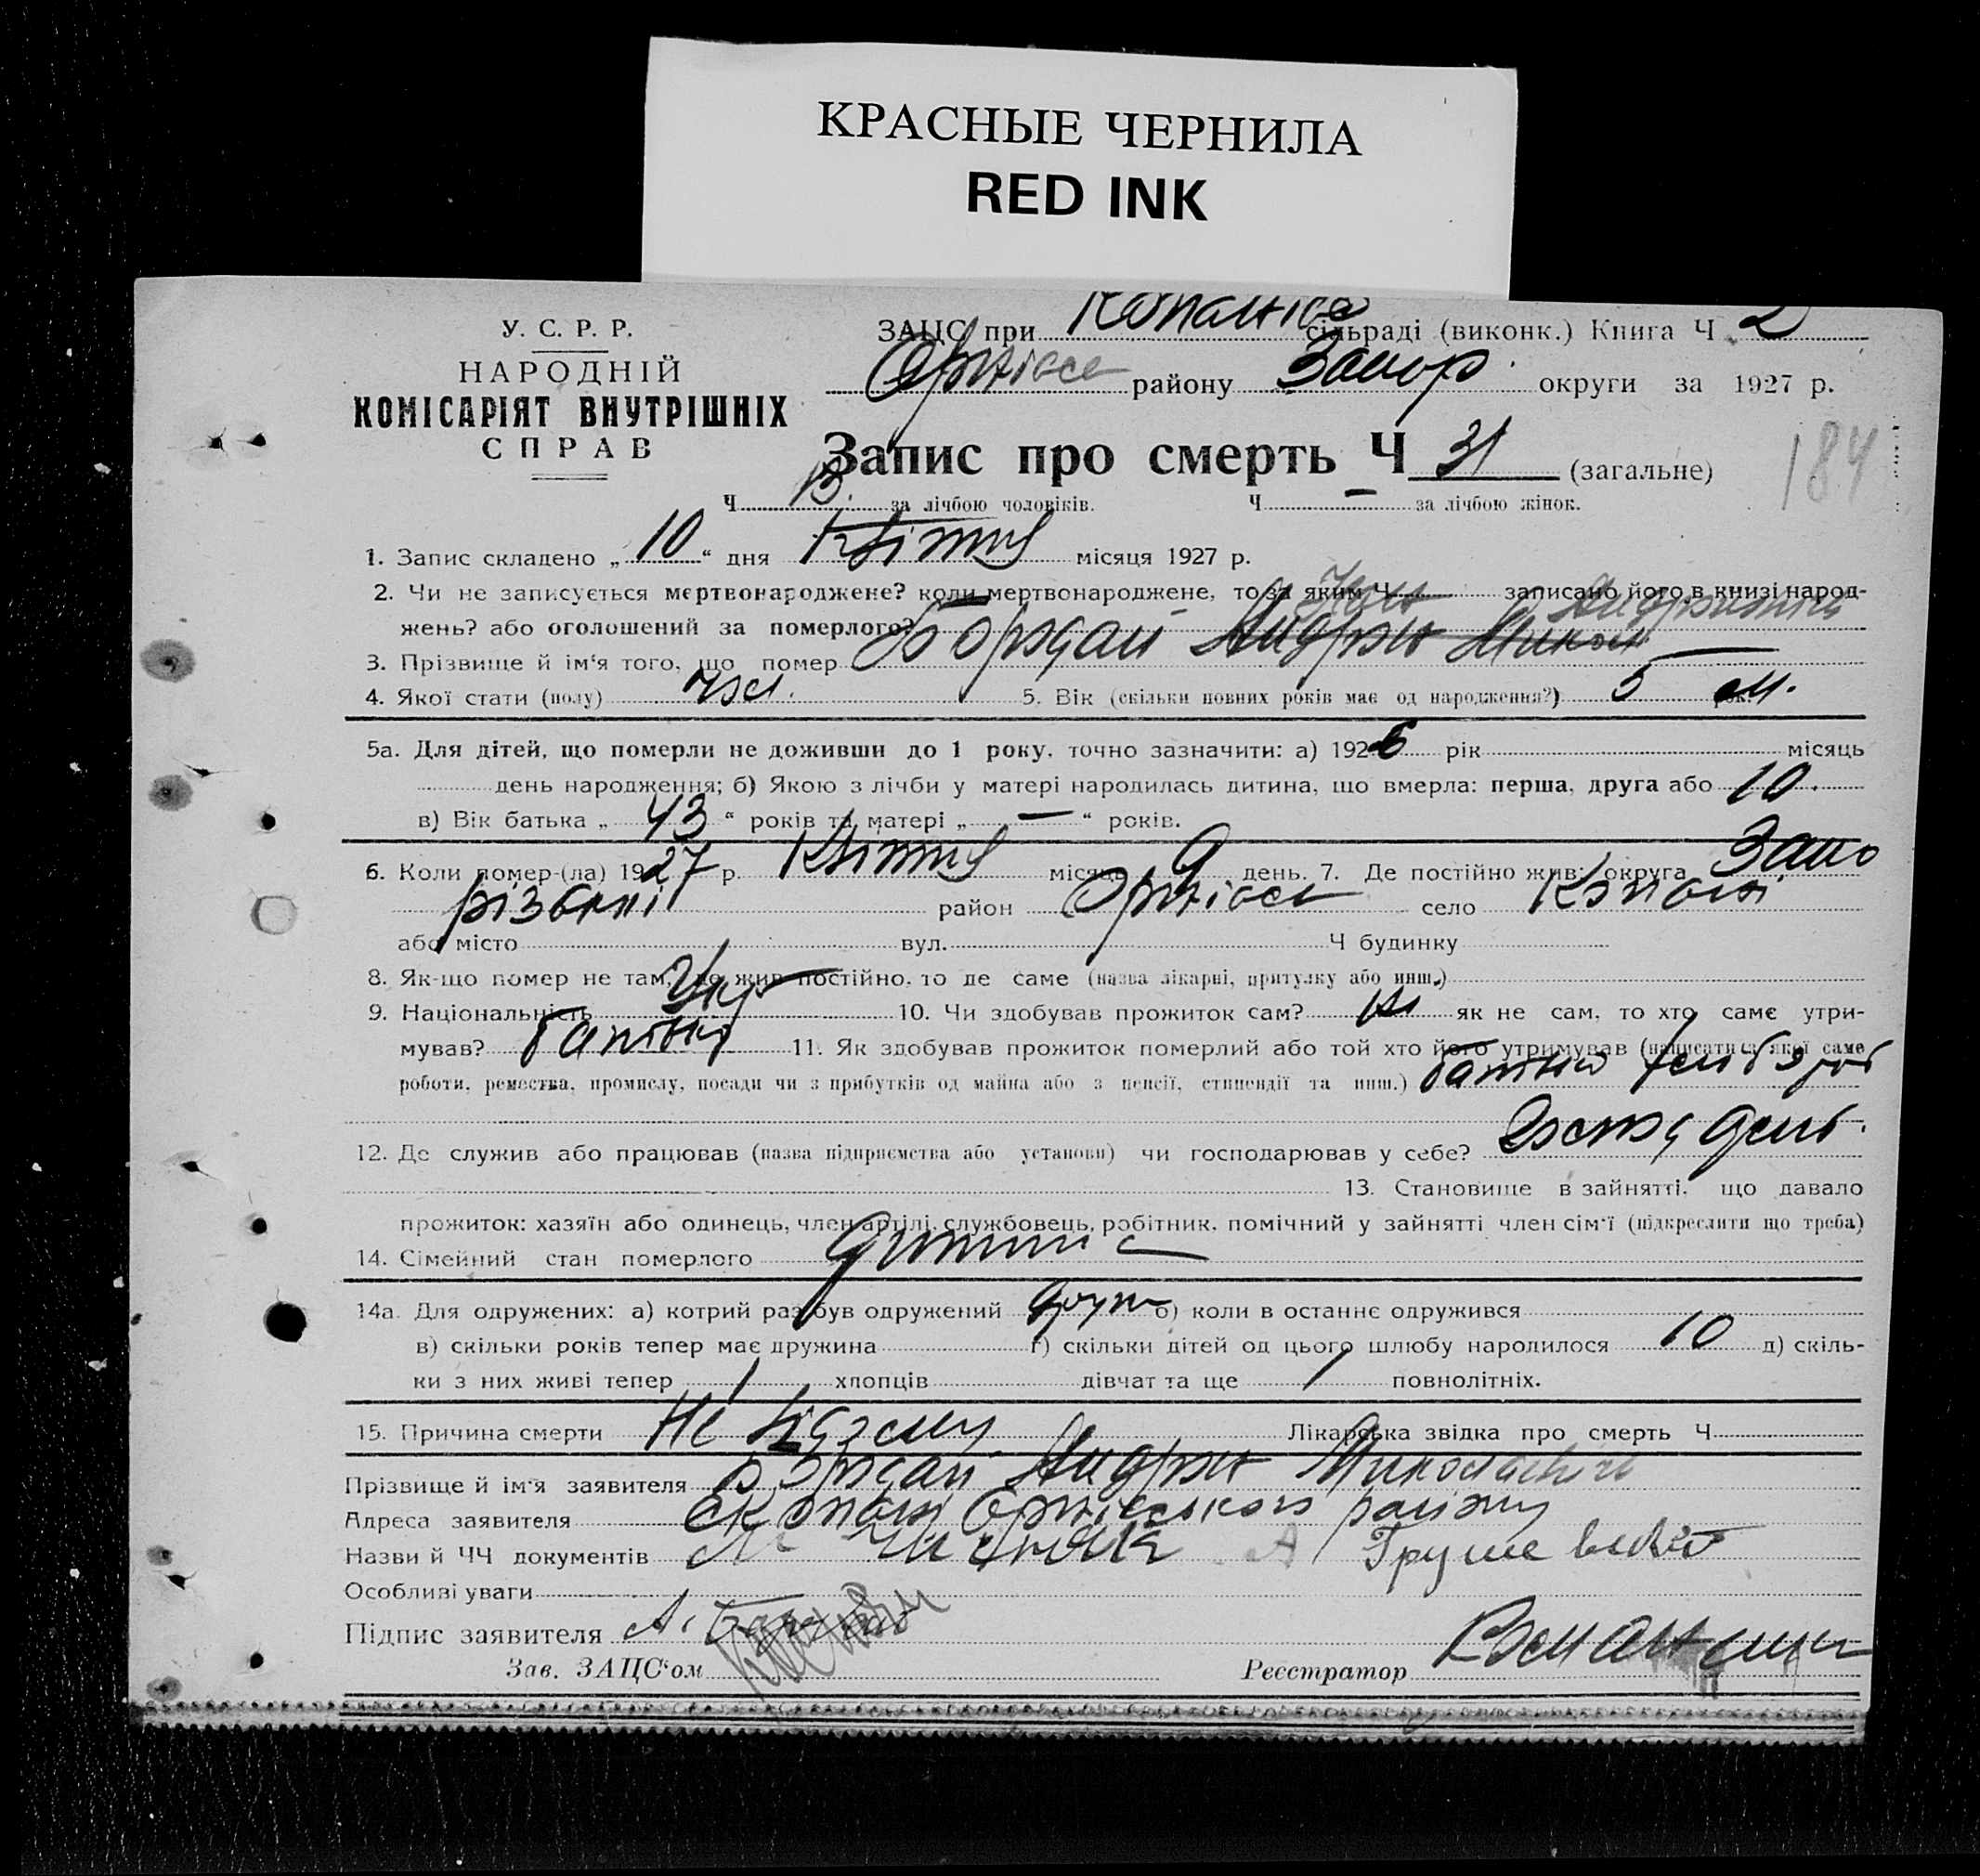 КРАСНЫЕ ЧЕРНИЛА
RED INK
У. С. Р. Р.
НАРОДНІЙ
КОМІСАРІЯТ ВНУТРІШНІХ
СПРАВ
ЗАЦС при сільраді (виконк.) Книга Ч 2
району Запор. округи за 1927 р.
Запис про смерть Ч 31 (загальне)
184
Ч 13. за лічбою чоловіків. Ч — за лічбою жінок.
1. Запис складено „ 10 “ дня Квітня місяця 1927 р.
2. Чи не записується мертвонароджене? коли мертвонароджене, то за яким Ч записано його в книзі народ-
жень? або оголошений за померлого?
3. Прізвище й ім‘я того, що помер Андрій
4. Якої стати (полу) чол. 5. Вік (скільки повних років має од народження?) 5 м.
5а. Для дітей, що померли не доживши до 1 року, точно зазначити: а) 1926 рік місяць
день народження; б) Якою з лічби у матері народилась дитина, що вмерла: перша, друга або 10.
в) Вік батька „ 43 “ років та матері „ — “ років.
6. Коли помер-(ла) 1927 р. Квітня місяць 9 день. 7. Де постійно жив: округа Запо
різькій район село Копані
або місто вул. Ч будинку
8. Як-що помер не там, де жив постійно, то де саме (назва лікарні, притулку або инш.)
9. Національність Укр 10. Чи здобував прожиток сам? ні як не сам, то хто саме утри-
мував? батько 11. Як здобував прожиток померлий або той хто його утримував (написати якої саме
роботи, ремества, промислу, посади чи з прибутків од майна або з пенсії, стипендії та инш.) батько
12. Де служив або працював (назва підприємства або установи) чи господарював у себе?
13. Становище в зайнятті, що давало
прожиток: хазяїн або одинець, член артілі, службовець, робітник, помічний у зайнятті член сім‘ї (підкреслити що треба)
14. Сімейний стан померлого дитина
14а. Для одружених: а) котрий раз був одружений б) коли в останнє одружився
в) скільки років тепер має дружина г) скільки дітей од цього шлюбу народилося 10 д) скіль-
ки з них живі тепер 1 хлопців дівчат та ще 1 повнолітніх.
15. Причина смерти Не відомо Лікарська звідка про смерть Ч
Прізвище й ім‘я заявителя Андрій Миколаєвич
Адреса заявителя с. Копані Оріхівського району
Назви й ЧЧ документів
Особливі уваги
Підпис заявителя А.
Зав. ЗАЦС‘ом Реєстратор